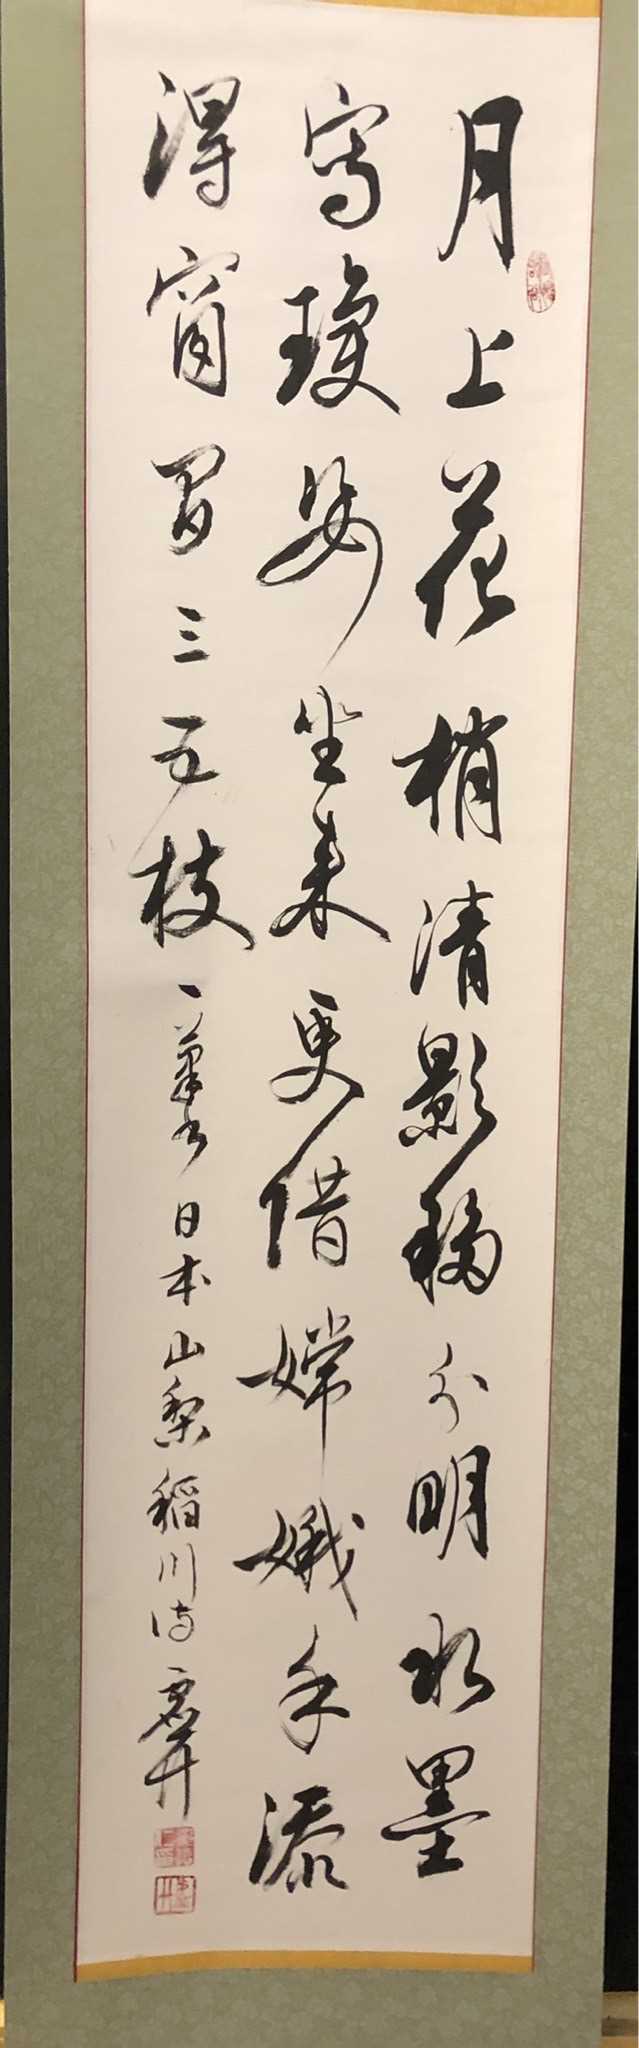 月上花梢清影移分明水墨
寫瓊姿坐来更借嫦娥手添
得窗間三五枝 日本山梨稲川詩